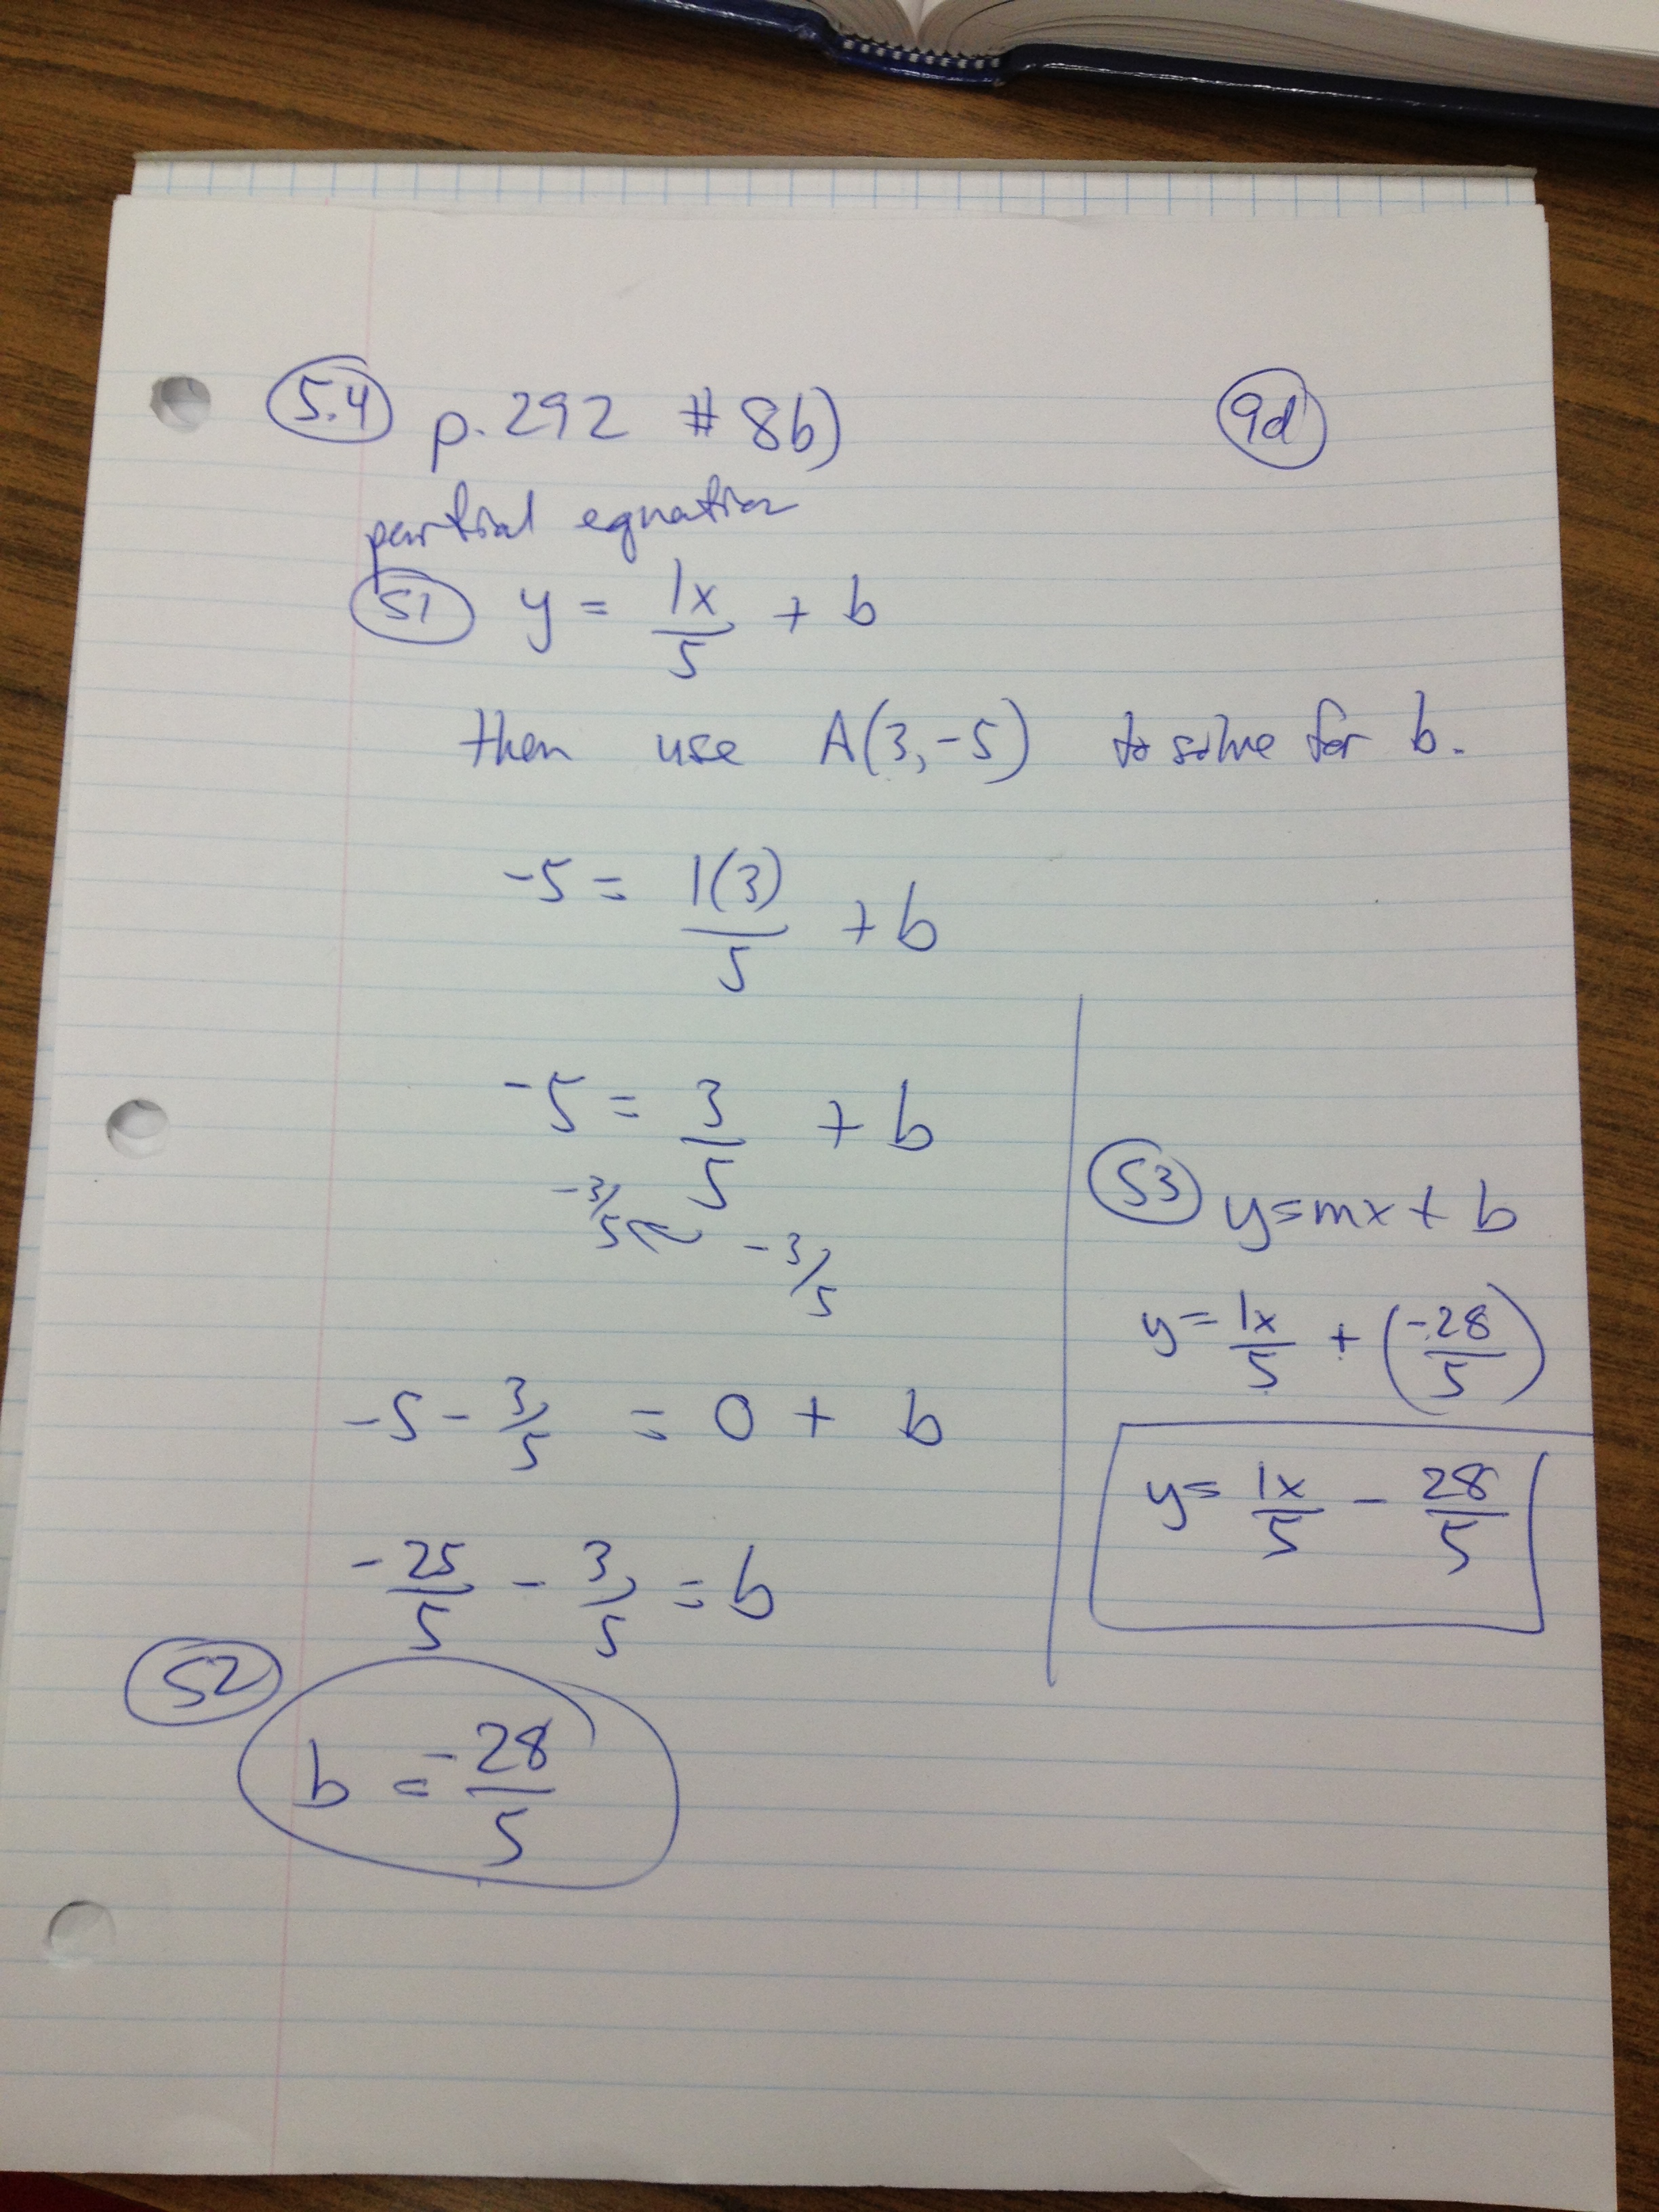 5.4 p.292 #8b) 9d
partial equation
S1 y = 1x/5 + b
then use A(3,-5) to solve for b.
-5 = 1(3)/5 + b
-5 = 3/5 + b
-3/5 -3/5
-5 - 3/5 = 0 + b
-25/5 - 3/5 = b
S2
b = -28/5
S3 y=mx+b
y= 1x/5 + (-28/5)
y= 1x/5 - 28/5